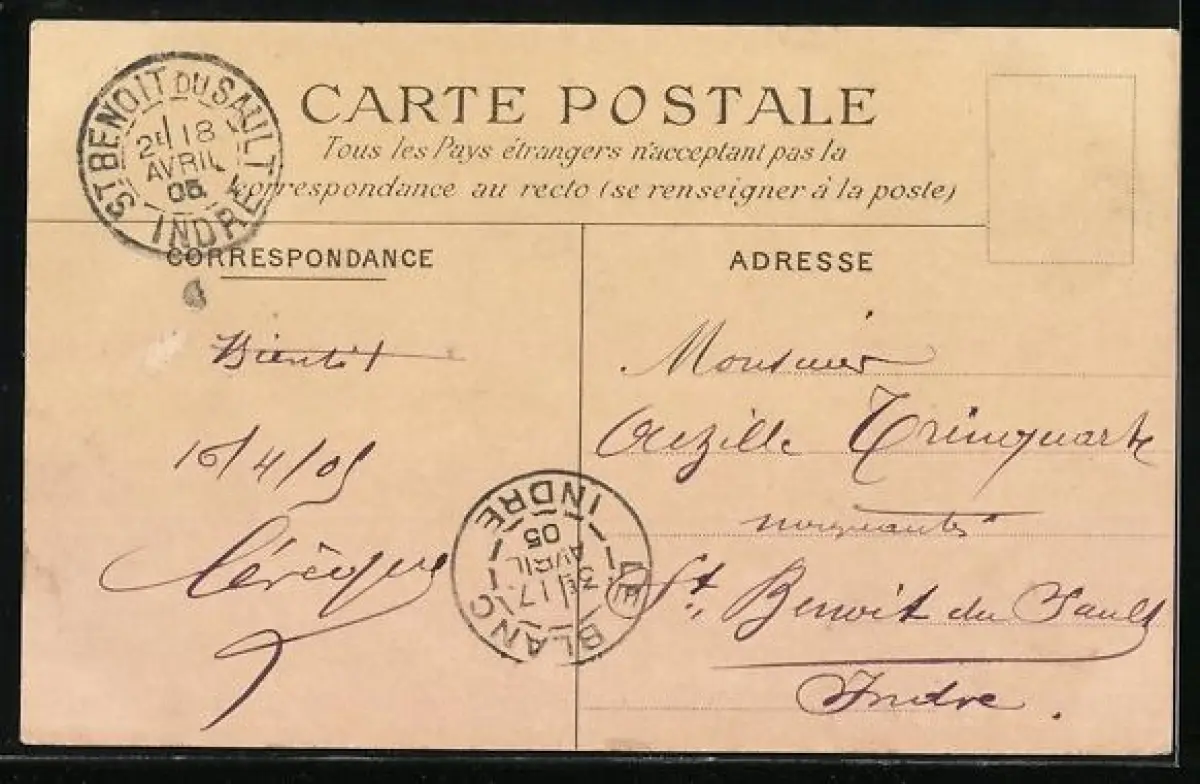 CARTE POSTALE
Tous les Pays étrangers n'acceptant pas la
correspondance au recto (se renseigner à la poste)
ST BENOIT DU SAULT
2E/18
AVRIL
05
INDRE
CORRESPONDANCE
Bientôt
16/4/05
ADRESSE
Monsieur
Trinquart
St. Benoit du Sault
Indre.
LE BLANC
3E/17
AVRIL
05
INDRE
E